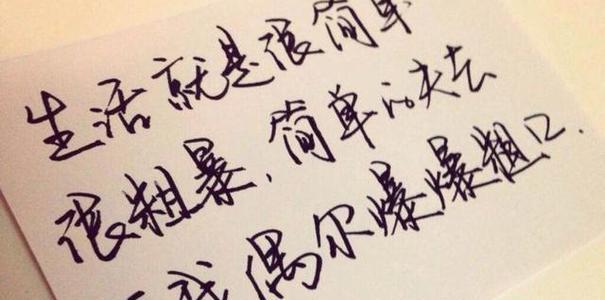 生活就是很简单
很粗暴，简单的失去
我偶尔爆爆粗口．